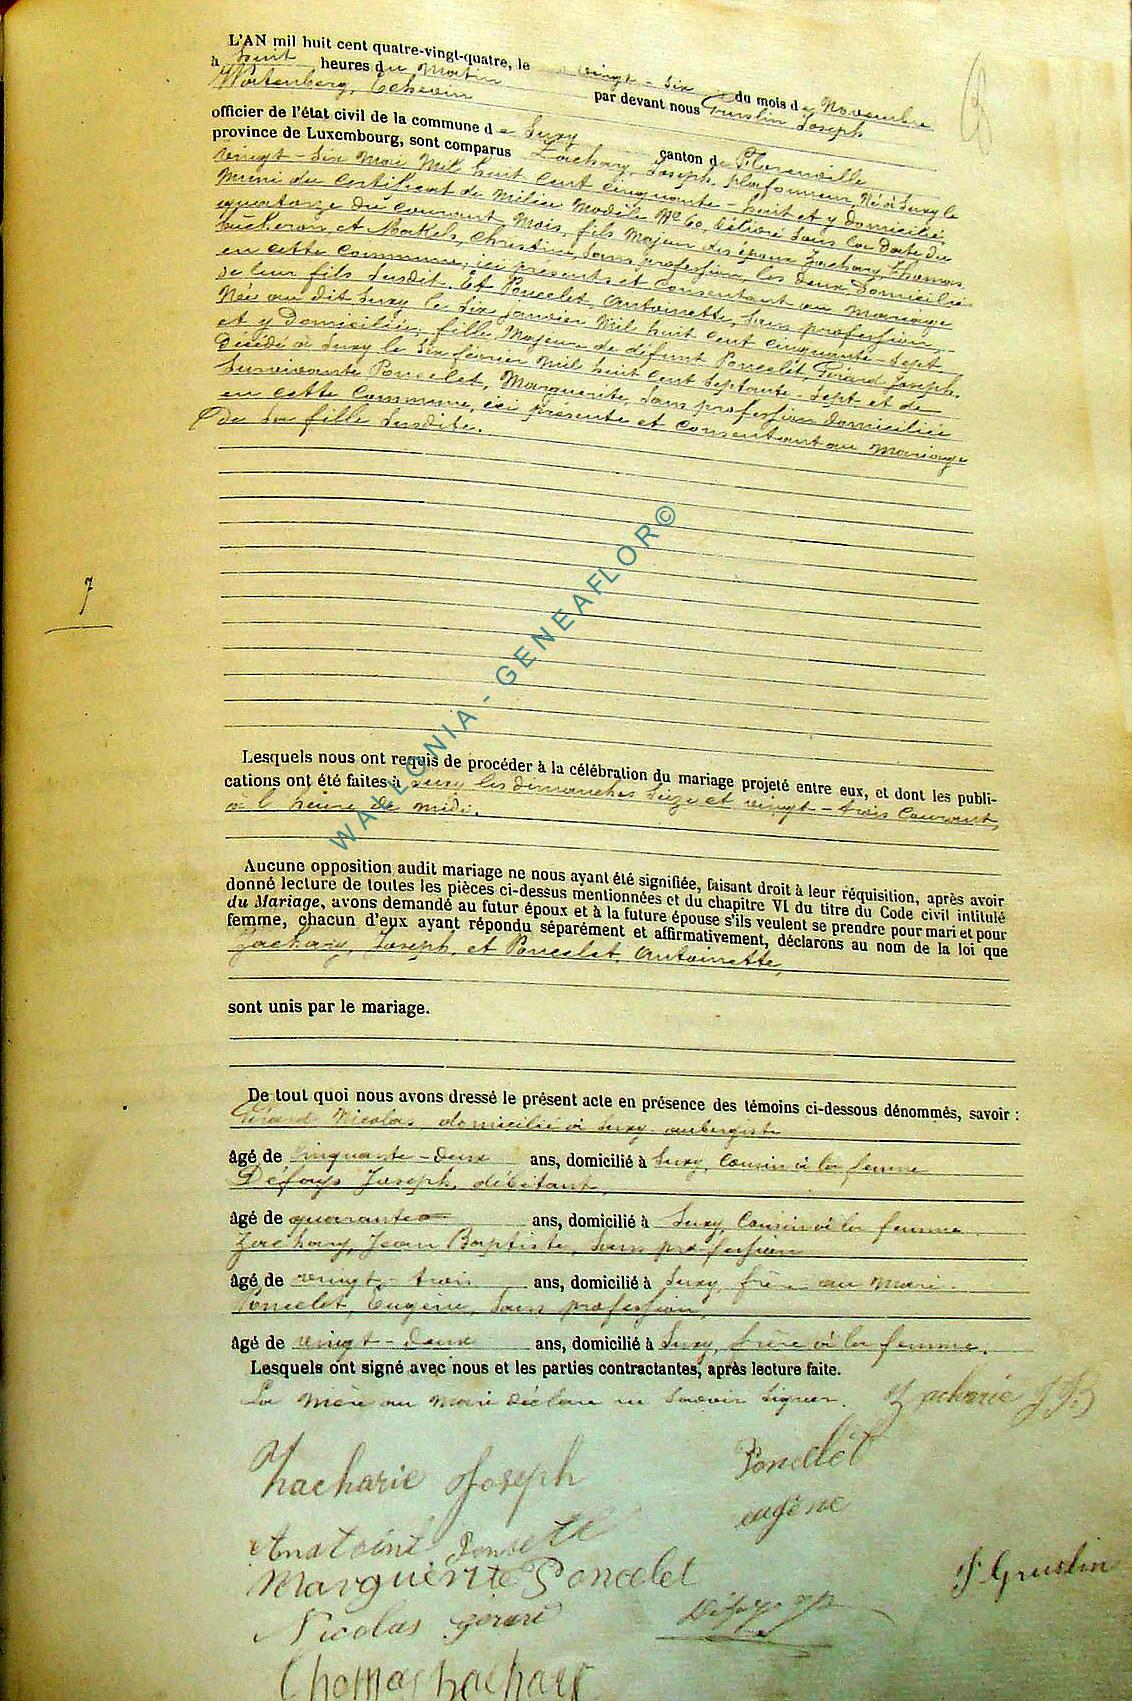 L'AN mil huit cent quatre-vingt-quatre, le vingt-six du mois de Novembre
à huit heures du Matin par devant nous Gruslin Joseph
Wortenberg, Echevin
officier de l'état civil de la commune de Suxy canton de Florenville
province de Luxembourg, sont comparus Zachary, Joseph, plafonneur, Né à Suxy le
vingt-six Mai Mil huit cent cinquante-huit et y domicilié,
Muni du certificat de Milice Modèle No 60, délivré sous la date du
quatorze du courant Mois, fils Majeur des époux Zachary, Thomas,
bûcheron, et Christine, sans profession, les deux domiciliés
en cette commune, ici présents et consentant au mariage
de leur fils susdit. Et Poncelet, Antoinette, sans profession
Née au dit Suxy le six janvier Mil huit cent cinquante-sept
et y domiciliée, fille Majeure de défunt Poncelet, Gérard Joseph,
décédé à Suxy le six février Mil huit cent septante-sept et de
survivante Poncelet, Marguerite, sans profession domiciliée
en cette commune, ici présente et consentant au mariage
de sa fille susdite.
7
Lesquels nous ont requis de procéder à la célébration du mariage projeté entre eux, et dont les publi-
cations ont été faites à Suxy les dimanches seize et vingt-trois Courant,
à l'heure de midi.
Aucune opposition audit mariage ne nous ayant été signifiée, faisant droit à leur réquisition, après avoir
donné lecture de toutes les pièces ci-dessus mentionnées et du chapitre VI du titre du Code civil intitulé
du Mariage, avons demandé au futur époux et à la future épouse s'ils veulent se prendre pour mari et pour
femme, chacun d'eux ayant répondu séparément et affirmativement, déclarons au nom de la loi que
Zachary, Joseph, et Poncelet, Antoinette,
sont unis par le mariage.
De tout quoi nous avons dressé le présent acte en présence des témoins ci-dessous dénommés, savoir :
Gérard Nicolas, domicilié à Suxy aubergiste
âgé de cinquante-deux ans, domicilié à Suxy, cousin à la femme
Défays Joseph, débitant,
âgé de quarante ans, domicilié à Suxy, cousin à la femme
Zachary, Jean Baptiste, sans profession
âgé de vingt-trois ans, domicilié à Suxy, frère au mari.
Poncelet, Eugène, sans profession,
âgé de vingt-deux ans, domicilié à Suxy, frère à la femme.
Lesquels ont signé avec nous et les parties contractantes, après lecture faite.
La mère au mari déclare ne savoir signer. Zacharie J B
Zacharie Joseph
Poncelet
eugène
Marguerite Poncelet
J. Gruslin
Nicolas gérard
Thomas Zachary
WALLONIA - GENEAFLOR©